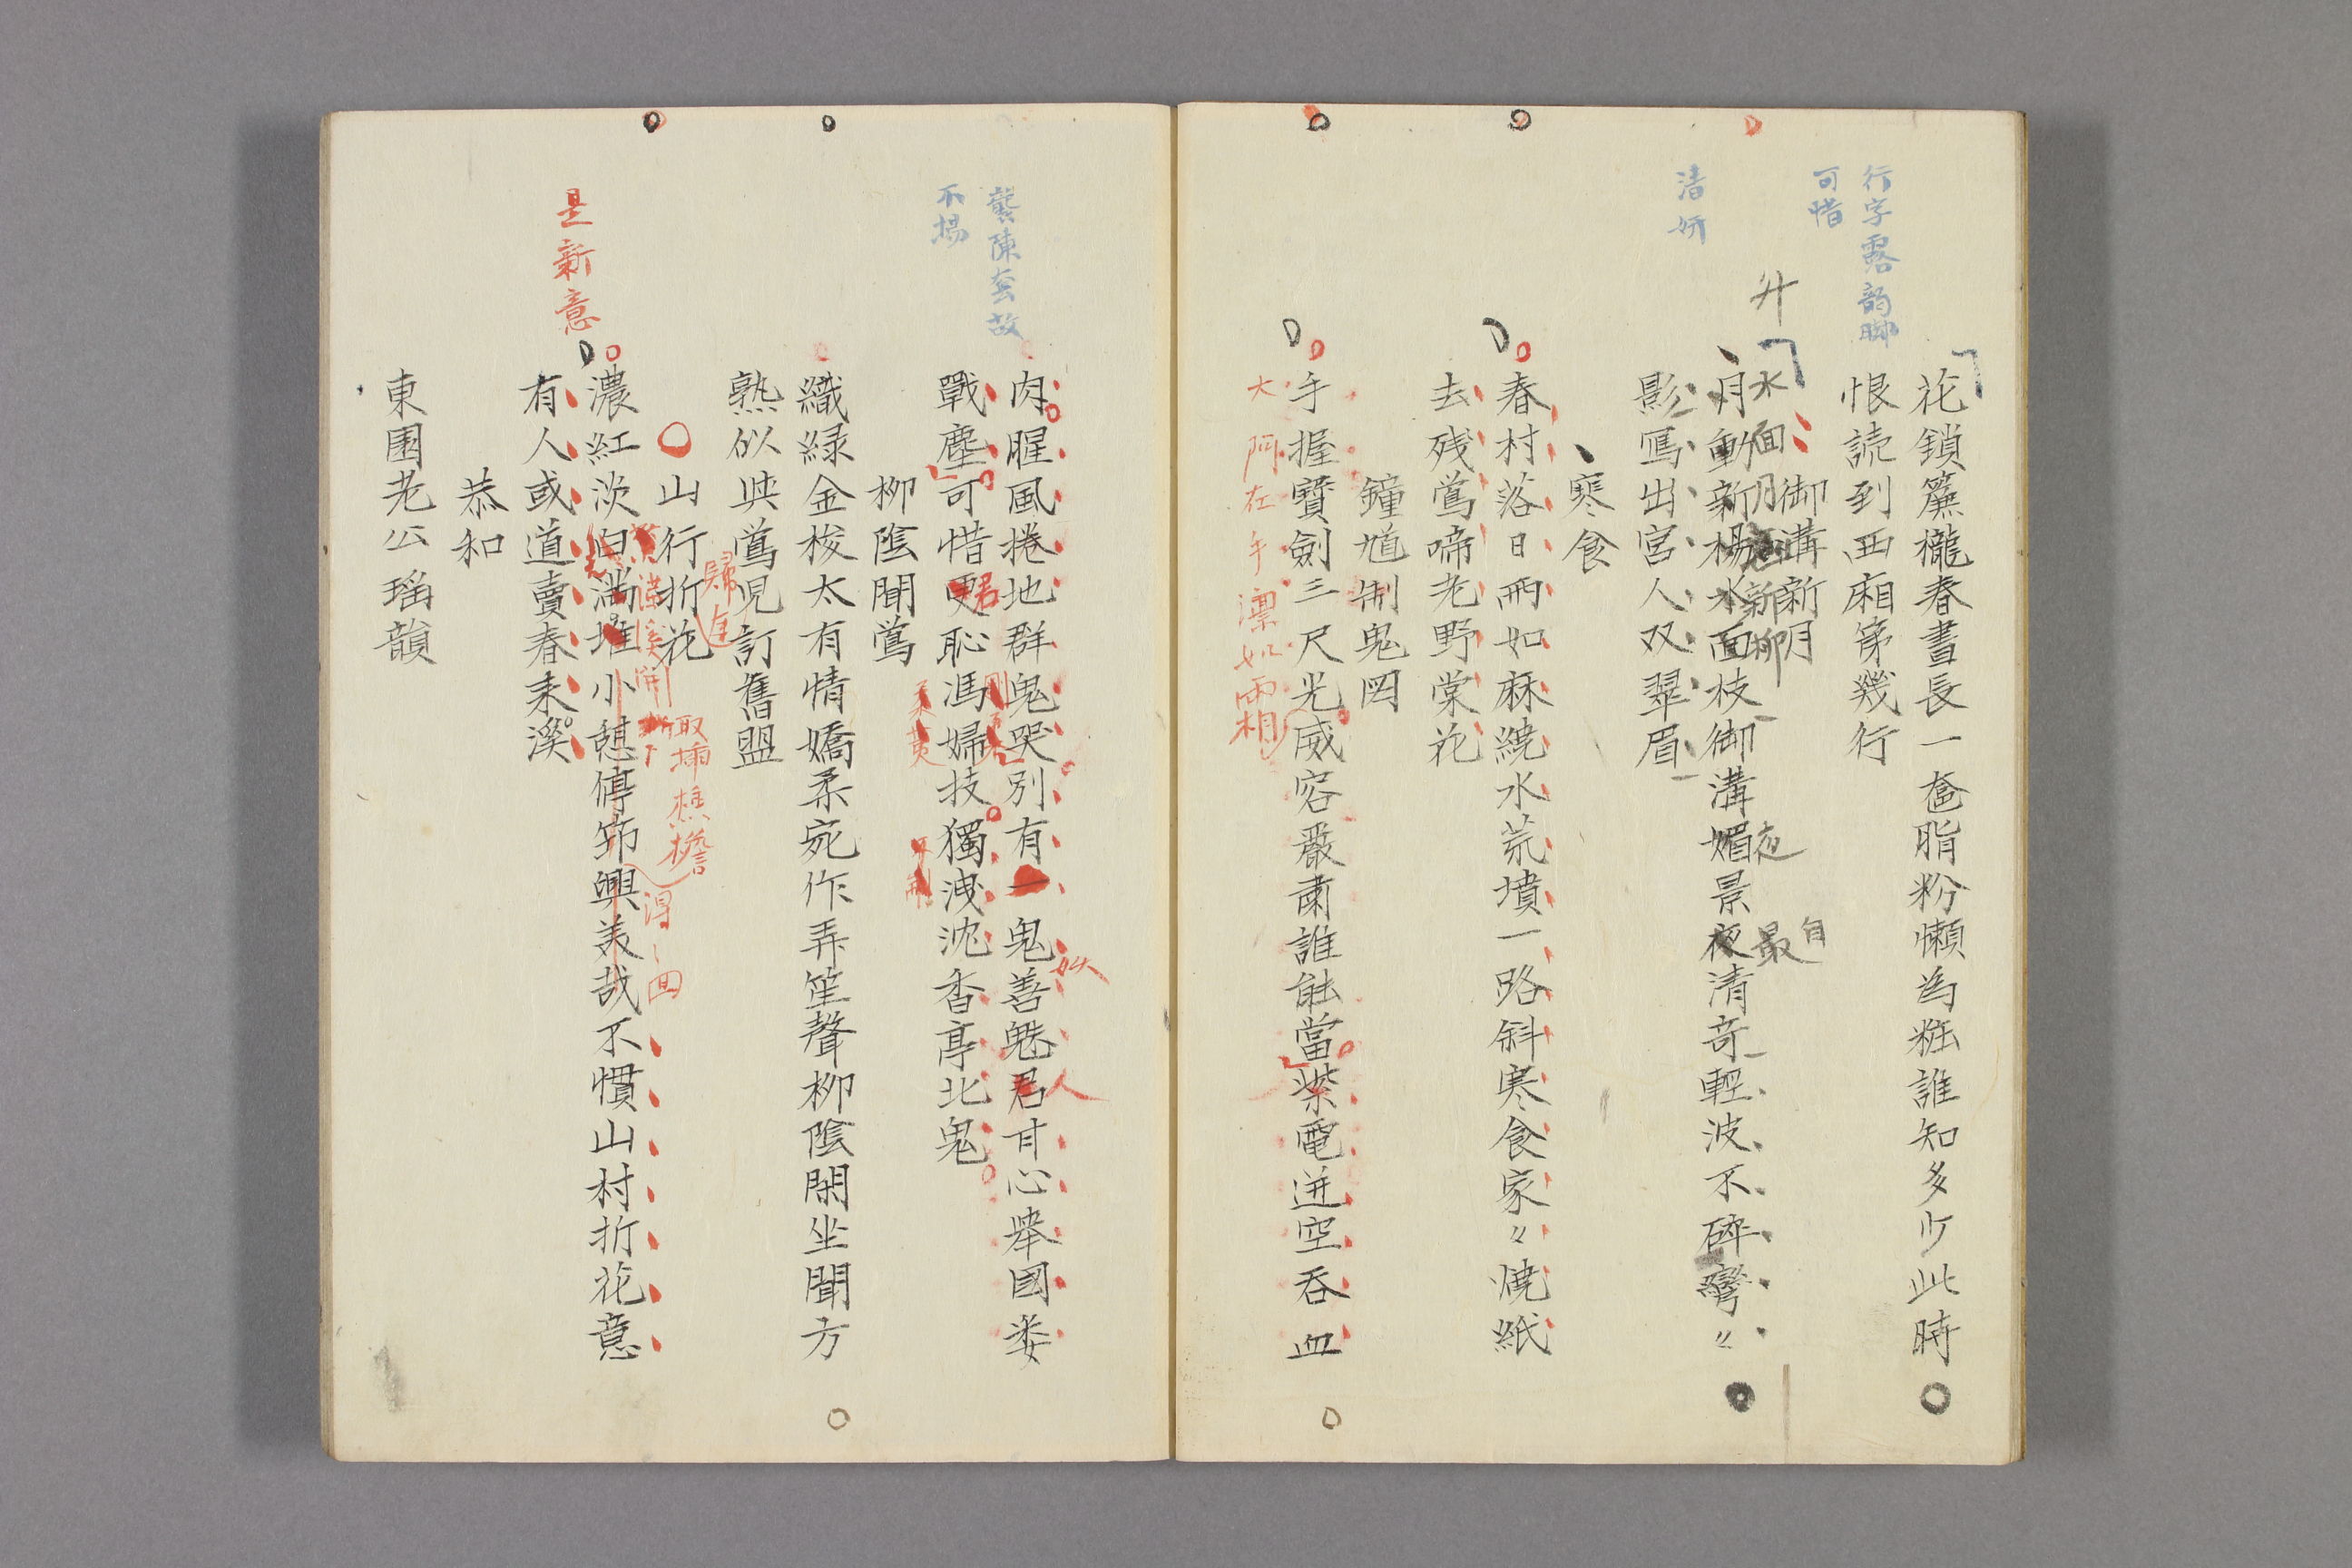 行字露韵脚
可惜
花鎖簾櫳春晝長一奩脂粉懶為粧誰知多少此時
恨読到西廂第幾行
御溝新月
水面月 新柳
月動新楊水面枝御溝媚景夜清奇輕波不碎彎〻
夜
最
自
升
清妍
影寫出宮人双翠眉
寒食
春村落日雨如麻繞水荒墳一路斜寒食家〻焼紙
去残鶯啼老野棠花
鐘馗制鬼図
手握寶劍三尺光威容嚴肅誰能當紫電迸空呑血
大阿在手凛如霜
襲陳套故
不揚
肉腥風捲地群鬼哭別有一鬼善魅君甘心舉國委
妖
人
戰塵可惜更恥馮婦技獨洩沈香亭北鬼
君
柳陰聞鶯
織緑金梭太有情嬌柔宛作弄笙聲柳陰閑坐聞方
熟似與鶯児訂舊盟
山行折花
歸自
是新意
濃紅淡白満堆小憩停筇興美哉不慣山村折花意
溪開
取插樵檐
得〻回
有人或道賣春来溪
恭和
東園老公瑶韻